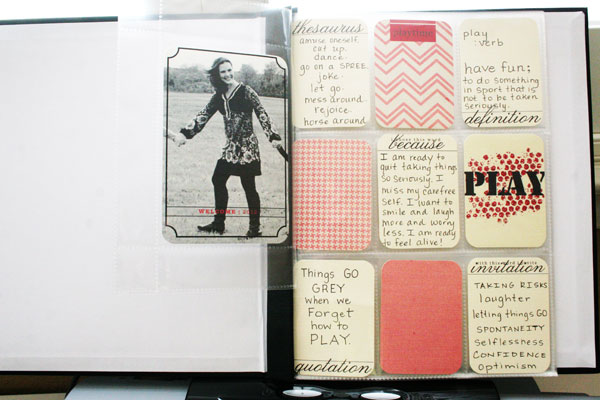 thesaurus
amuse oneself.
cut up.
dance.
go on a SPREE.
joke.
let go.
mess around.
rejoice.
horse around
playtime
play
:verb
have fun;
to do something
in sport that is
not to be taken
seriously.
definition
WELCOME
because
I am ready to
quit taking things
so seriously. I
miss my carefree
self. I want to
smile and laugh
more and worry
less. I am ready
to feel alive!
PLAY
Things GO
GREY
when we
Forget
how to
PLAY.
quotation
invitation
TAKING RISKS
laughter
letting things GO
SPONTANEITY
selflessness
CONFIDENCE
optimism